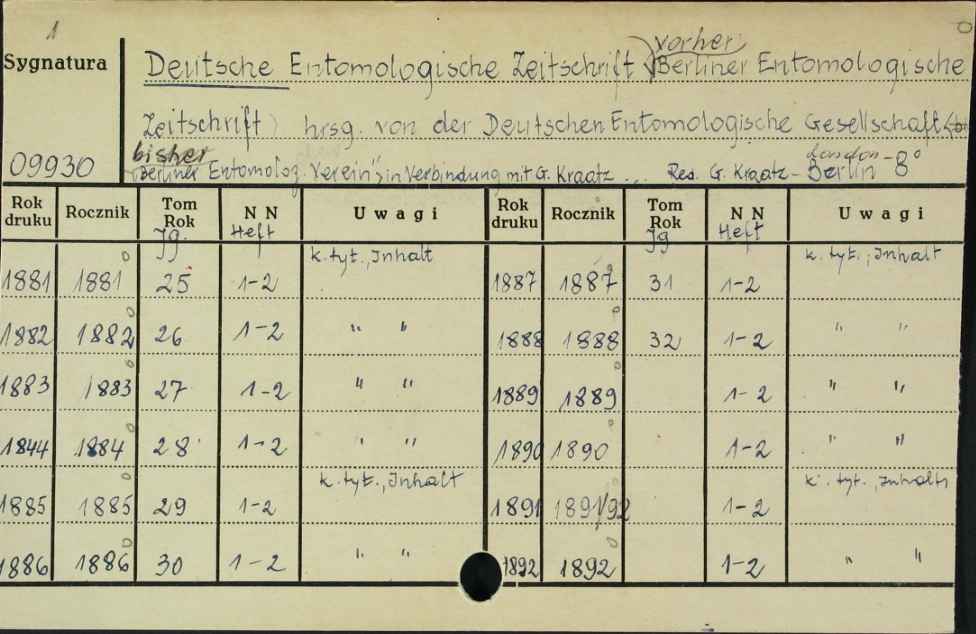 1
Sygnatura
vorher
Deutsche Entomologische Zeitschrift (Berliner Entomologische
Zeitschrift) hrsg. von der Deutschen Entomologische Gesellschaft
bisher
London -
09930 Berliner Entomolog. Verein", in Verbindung mit G. Kraatz ... Red. G. Kraatz - Berlin 8°
Rok druku Rocznik Tom Rok N N Uwagi Rok druku Rocznik Tom Rok N N Uwagi
Jg. Heft Jg Heft
k. tyt., Inhalt k. tyt., Inhalt
1881 1881 25 1-2 1887 1887 31 1-2
1882 1882 26 1-2 " " 1888 1888 32 1-2 " "
1883 1883 27 1-2 " " 1889 1889 1-2 " "
1844 1884 28 1-2 " " 1890 1890 1-2 " "
k. tyt., Inhalt k. tyt., Inhalt
1885 1885 29 1-2 1891 1891/92 1-2
1886 1886 30 1-2 " " 1892 1892 1-2 " "